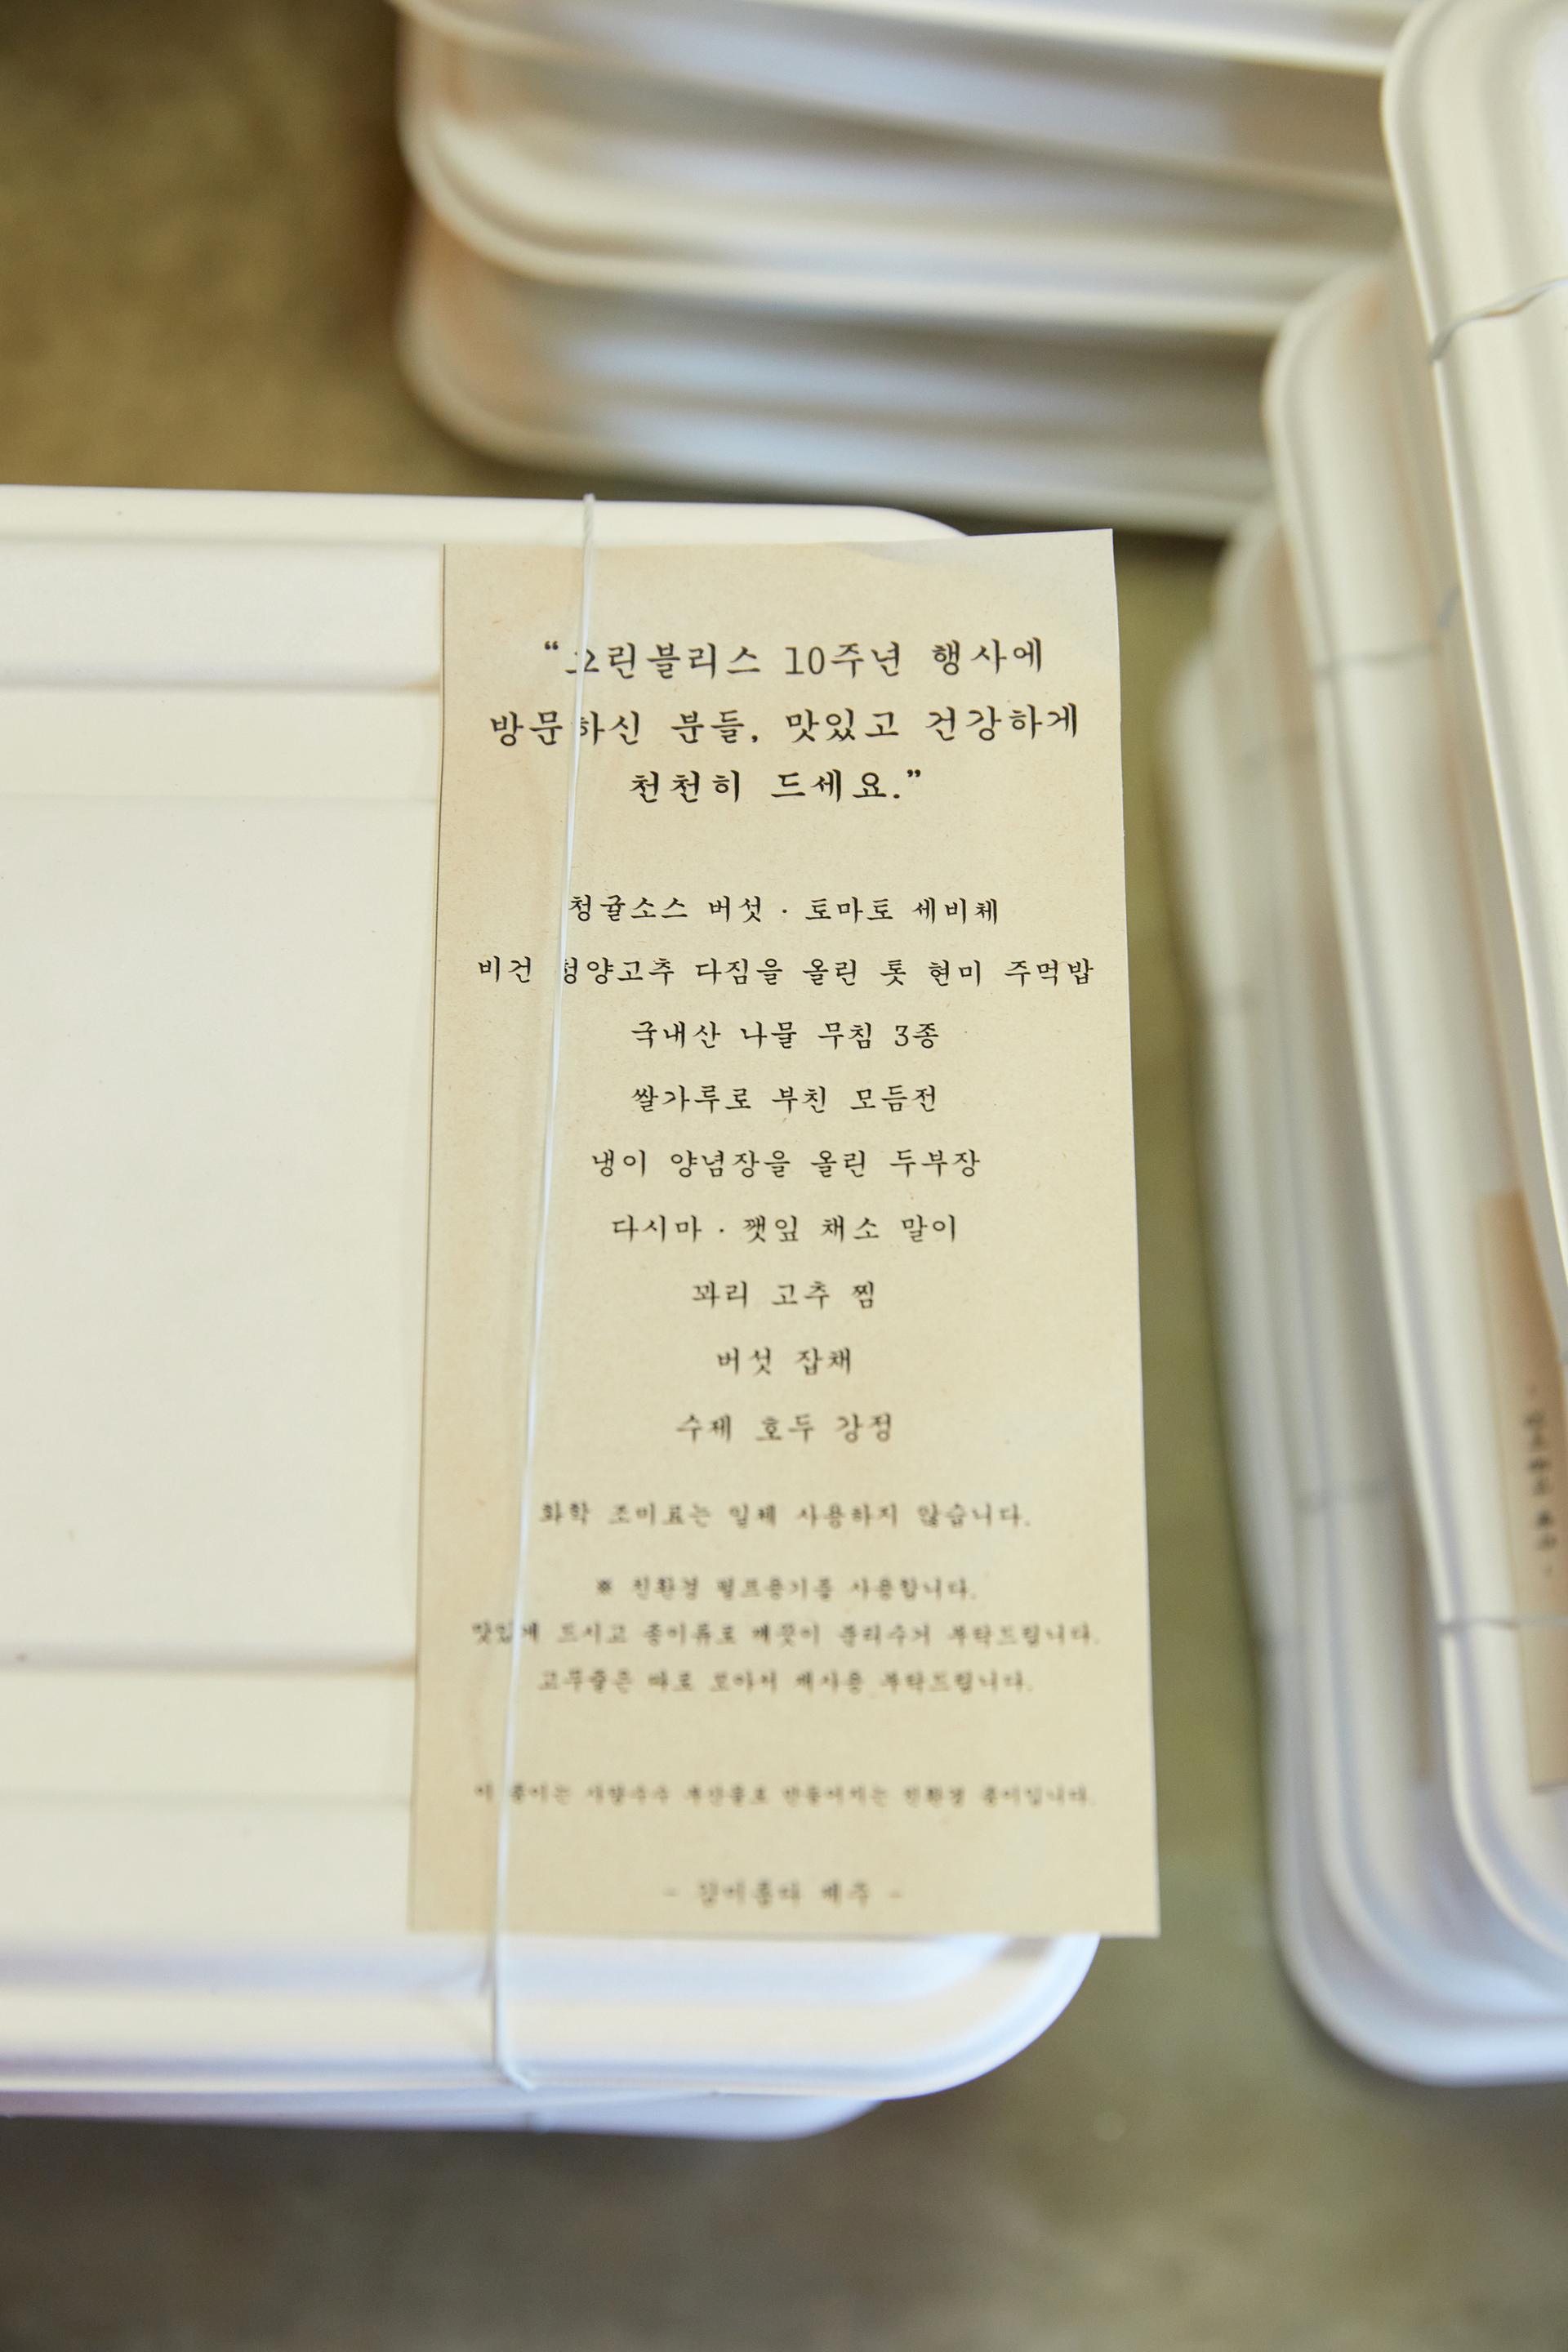 “그린블리스 10주년 행사에
방문하신 분들, 맛있고 건강하게
천천히 드세요.”
청귤소스 버섯 · 토마토 세비체
비건 청양고추 다짐을 올린 톳 현미 주먹밥
국내산 나물 무침 3종
쌀가루로 부친 모듬전
냉이 양념장을 올린 두부장
다시마 · 깻잎 채소 말이
꽈리 고추 찜
버섯 잡채
수제 호두 강정
화학 조미료는 일체 사용하지 않습니다.
※ 친환경 펄프용기를 사용합니다.
맛있게 드시고 종이류로 깨끗이 분리수거 부탁드립니다.
고무줄은 따로 모아서 재사용 부탁드립니다.
이 종이는 사탕수수 부산물로 만들어지는 친환경 종이입니다.
제주 -